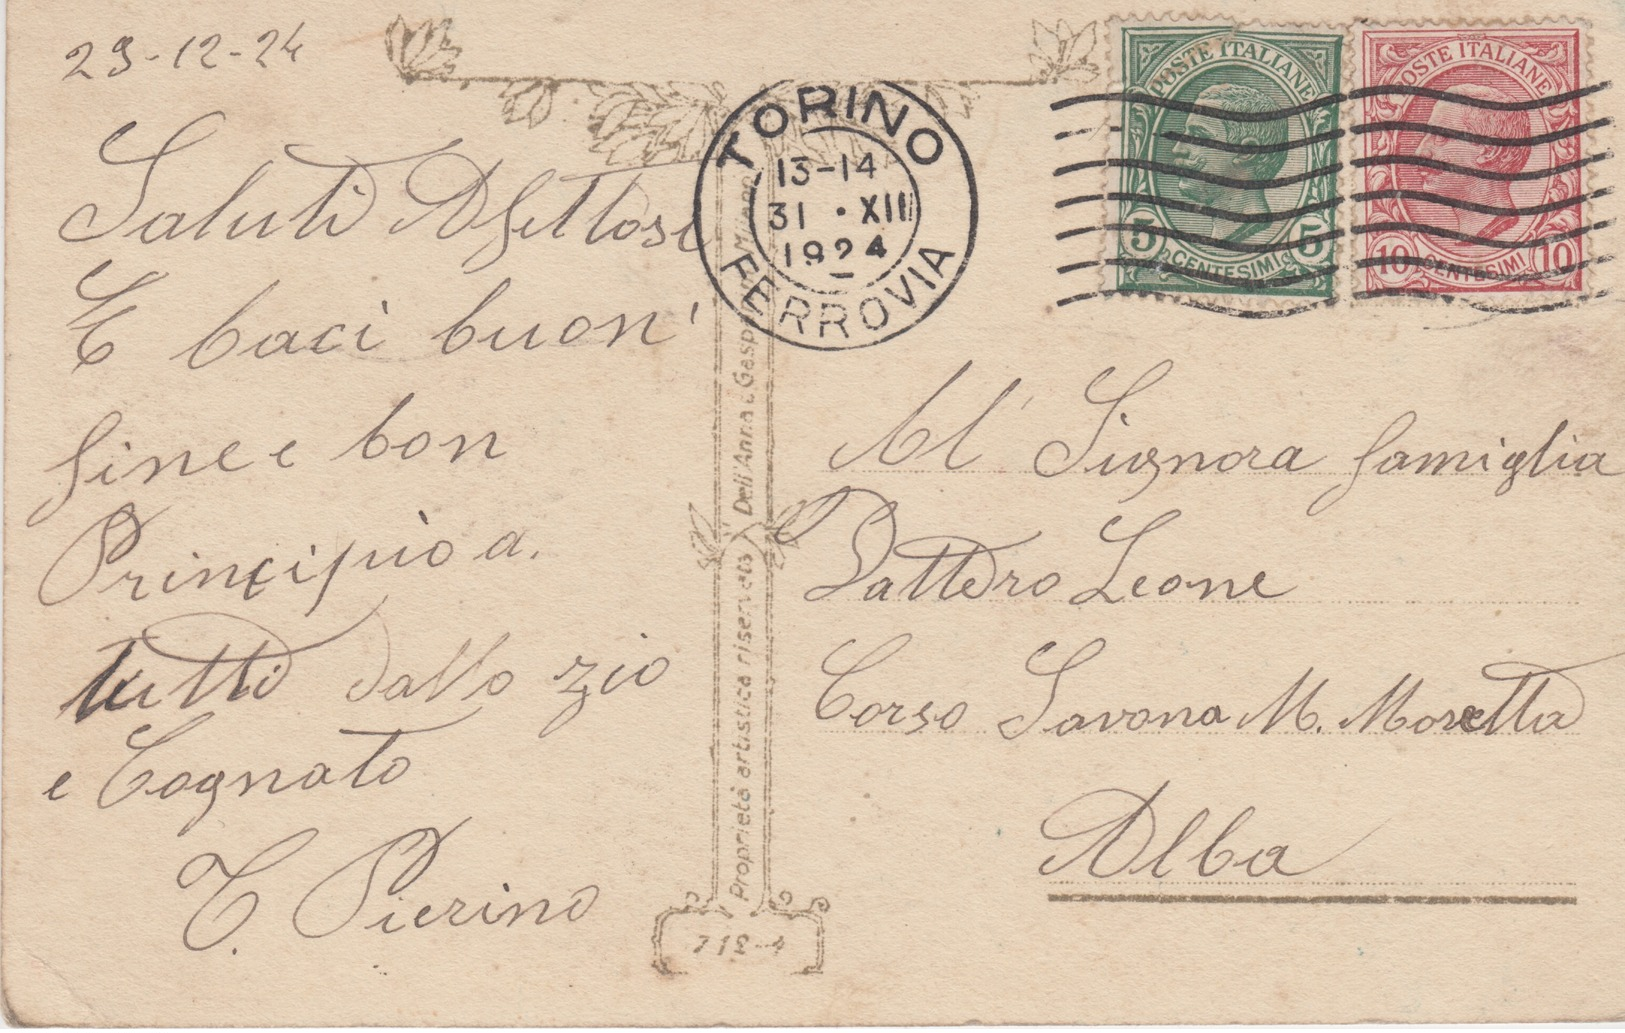 29-12-24
Saluti Afettosi
E baci buon'
fine e bon
Principio a.
tutti dallo zio
e Cognato
C. Pierino
TORINO
13-14
31 · XII
1924
FERROVIA
POSTE ITALIANE
5 CENTESIMI 5
POSTE ITALIANE
10 CENTESIMI 10
Al' Signora famiglia
Dattero Leone
Corso Savona M. Moretta
Alba
Proprietà artistica riservata Dell'Anna e Gasp
718-4